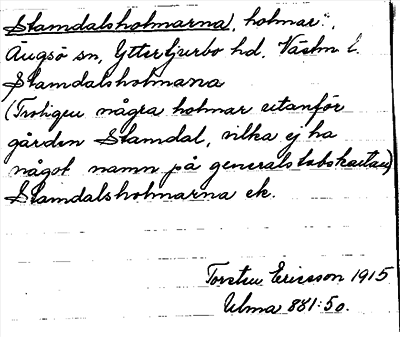 Stamdalsholmarna, holmar.
Ängsö sn, Yttertjurbo hd. Västm l.
Stamdalsholmana
(Troligen några holmar utanför
gården Stamdal, vilka ej ha
något namn på generalstabskartan)
Stamdalsholmarna ek.
Torsten Ericsson 1915
Ulma 881:50.